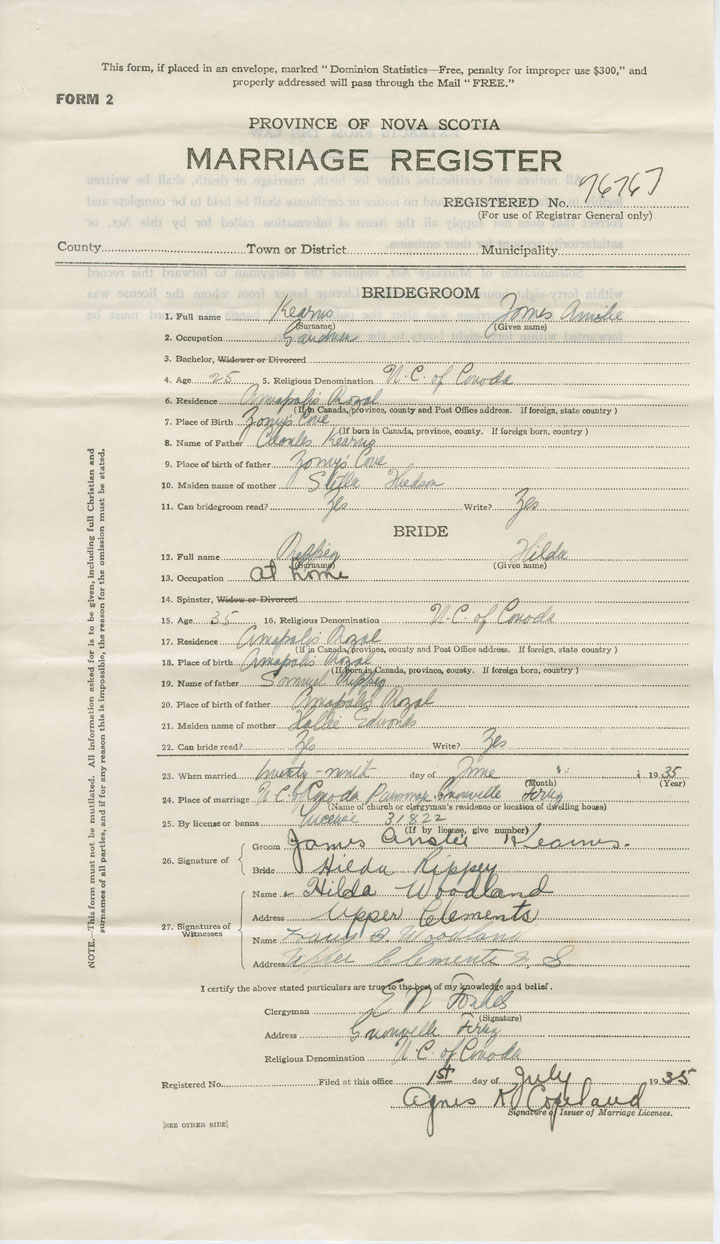 This form, if placed in an envelope, marked "Dominion Statistics—Free, penalty for improper use $300," and
properly addressed will pass through the Mail "FREE."
FORM 2
PROVINCE OF NOVA SCOTIA
MARRIAGE REGISTER
REGISTERED No. 76767
(For use of Registrar General only)
County Town or District Municipality
BRIDEGROOM
1. Full name Kearns James
(Surname) (Given name)
2. Occupation
3. Bachelor, Widower or Divorced
4. Age 25 5. Religious Denomination U.C. of Canada
6. Residence Annapolis Royal
(If in Canada, province, county and Post Office address. If foreign, state country)
7. Place of Birth Cove
(If born in Canada, province, county. If foreign born, country)
8. Name of Father Charles Kearns
9. Place of birth of father Cove
10. Maiden name of mother Stella Hudson
11. Can bridegroom read? Yes Write? Yes
BRIDE
12. Full name Rippey Hilda
(Surname) (Given name)
13. Occupation at home
14. Spinster, Widow or Divorced
15. Age 35 16. Religious Denomination U.C. of Canada
17. Residence Annapolis Royal
(If in Canada, province, county and Post Office address. If foreign, state country)
18. Place of birth Annapolis Royal
(If born in Canada, province, county. If foreign born, country)
19. Name of father Samuel Rippey
20. Place of birth of father Annapolis Royal
21. Maiden name of mother Edwards
22. Can bride read? Yes Write? Yes
23. When married twenty-ninth day of June 1935
(Month) (Year)
24. Place of marriage U.C. of Canada Parsonage Granville Ferry
(Name of church or clergyman's residence or location of dwelling house)
25. By license or banns License 31822
(If by license, give number)
26. Signature of
Groom James Kearns.
Bride Hilda Rippey
27. Signatures of Witnesses
Name Hilda Woodland
Address Upper Clements
Name B. Woodland
Address Upper Clements N.S
I certify the above stated particulars are true to the best of my knowledge and belief.
Clergyman Forbes
(Signature)
Address Granville Ferry
Religious Denomination U.C. of Canada
Registered No. Filed at this office 1st day of July 1935
Agnes K Copeland
Signature of Issuer of Marriage Licenses.
[SEE OTHER SIDE]
NOTE.—This form must not be mutilated. All information asked for is to be given, including full Christian and
surnames of all parties, and if for any reason this is impossible, the reason for the omission must be stated.